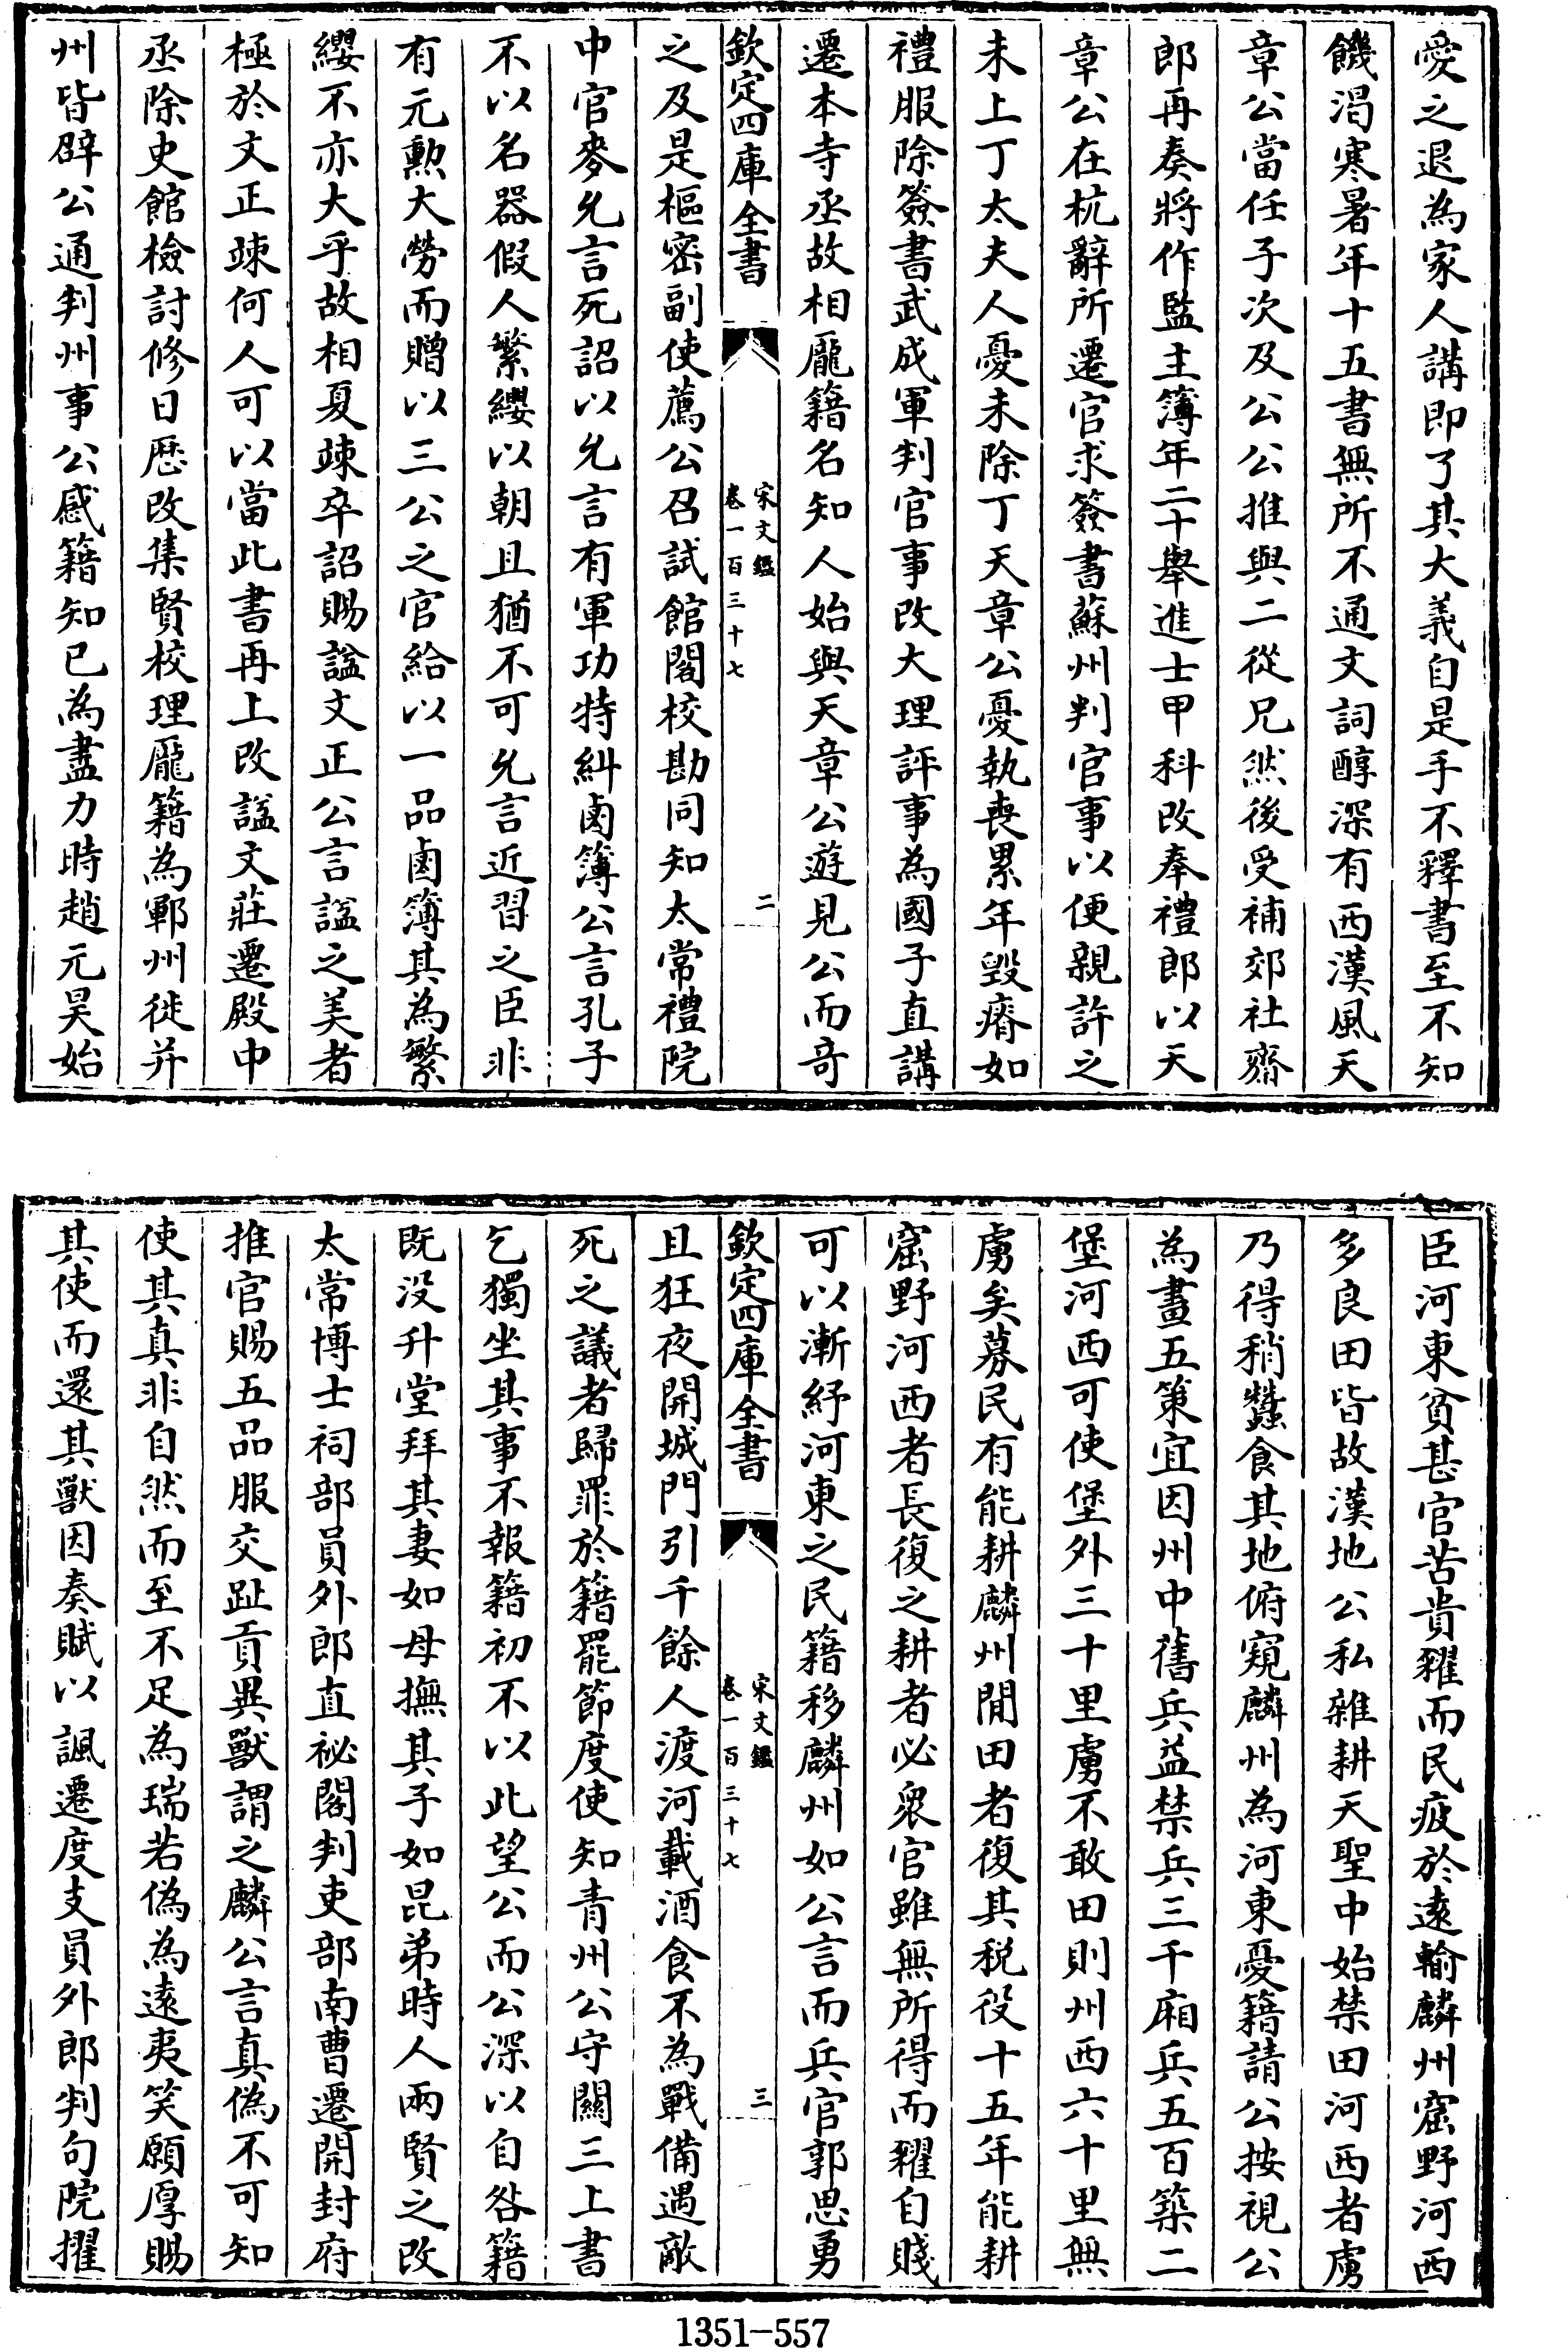 愛之退為家人講即了其大義自是手不釋書至不知
饑渇寒暑年十五書無所不通文詞醇深有西漢風天
章公當任子次及公公推與二從兄然後受補郊社齋
郎再奏將作監主簿年二十舉進士甲科改奉禮郎以天
章公在杭辭所遷官求簽書蘇州判官事以便親許之
未上丁太夫人憂未除丁天章公憂執喪累年毀瘠如
禮服除簽書武成軍判官事改大理評事為國子直講
遷本寺丞故相龎籍名知人始與天章公遊見公而竒
欽定四庫全書
宋文鑑
卷一百三十七
二
之及是樞密副使薦公召試館閣校勘同知太常禮院
中官麥允言死詔以允言有軍功特糾鹵簿公言孔子
不以名器假人繁纓以朝且猶不可允言近習之臣非
有元勲大勞而贈以三公之官給以一品鹵簿其為繁
纓不亦大乎故相夏竦卒詔賜諡文正公言諡之美者
極於文正竦何人可以當此書再上改諡文莊遷殿中
丞除史館檢討修日歴改集賢校理龎籍為鄆州徙并
州皆辟公通判州事公感籍知已為盡力時趙元昊始
臣河東貧甚官苦貴糴而民疲於逺輸麟州窟野河西
多良田皆故漢地公私雜耕天聖中始禁田河西者虜
乃得稍蠶食其地俯窺麟州為河東憂籍請公按視公
為畫五策宜因州中舊兵益禁兵三千廂兵五百築二
堡河西可使堡外三十里虜不敢田則州西六十里無
虜矣募民有能耕麟州閒田者復其税役十五年能耕
窟野河西者長復之耕者必衆官雖無所得而糴自賤
可以漸紓河東之民籍移麟州如公言而兵官郭恩勇
欽定四庫全書
宋文鑑
卷一百三十七
三
且狂夜開城門引千餘人渡河載酒食不為戰備遇敵
死之議者歸罪於籍罷節度使知青州公守闕三上書
乞獨坐其事不報籍初不以此望公而公深以自咎籍
既没升堂拜其妻如母撫其子如昆弟時人兩賢之改
太常博士祠部員外郎直祕閣判吏部南曹遷開封府
推官賜五品服交趾貢異獸謂之麟公言真偽不可知
使其真非自然而至不足為瑞若偽為逺夷笑願厚賜
其使而還其獸因奏賦以諷遷度支員外郎判句院擢
1351-557